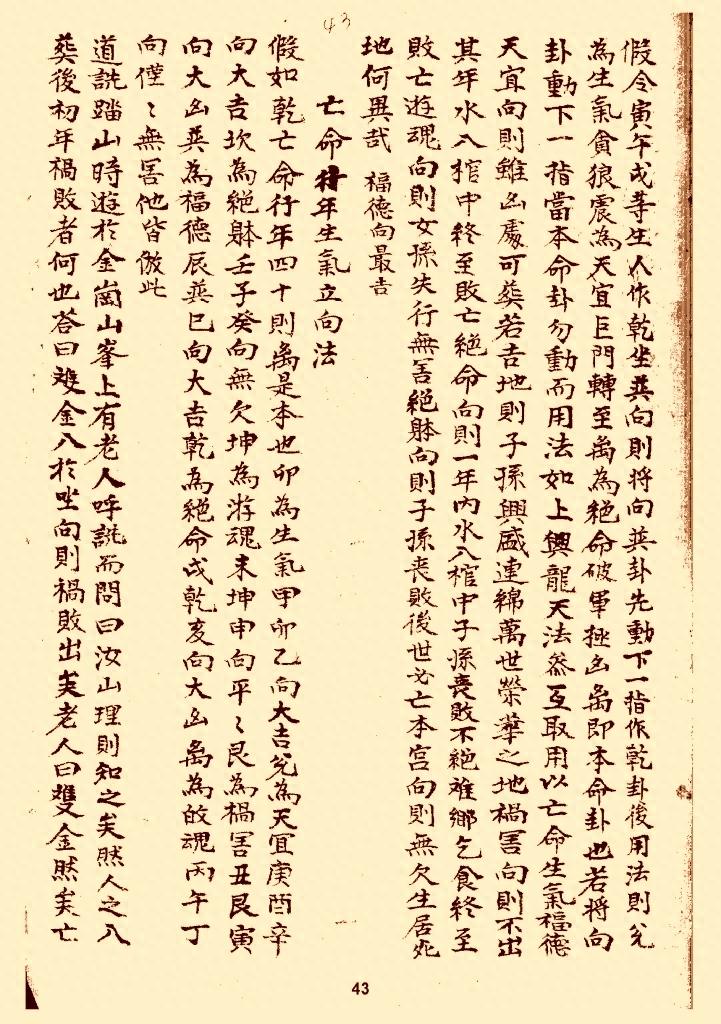 43
假令寅午戌等生人作乾坐巽向則将向巽卦先動下一指作乾卦後用法則兊
為生氣貪狼震為天宜巨門轉至离為絕命破軍極凶离即本命卦也若将向
卦動下一指當本命卦勿動而用法如上與龍天法叅互取用以亡命生氣福德
天宜向則雖凶處可葬若吉地則子孫興盛連綿萬世榮華之地禍害向則不出
其年水入棺中終至敗亡絕命向則一年內水入棺中子孫丧敗不絕难鄉乞食終至
敗亡遊魂向則女孫失行無害絕躰向則子孫丧敗後世必亡本宮向則無欠生居死
地何異哉 福德向最吉
亡命行年生氣立向法
假如乾亡命行年四十則离是本也卯為生氣甲卯乙向大吉兊為天宜庚酉辛
向大吉坎為絕躰壬子癸向無欠坤為游魂未坤申向平〻艮為禍害丑艮寅
向大凶巽為福德辰巽巳向大吉乾為絕命戌乾亥向大凶离為的魂丙午丁
向僅〻無害他皆倣此
道詵踏山時遊於金崗山峯上有老人呼詵而問曰汝山理則知之矣然人之入
葬後初年禍敗者何也答曰雙金入於坐向則禍敗出矣老人曰雙金然矣亡
43